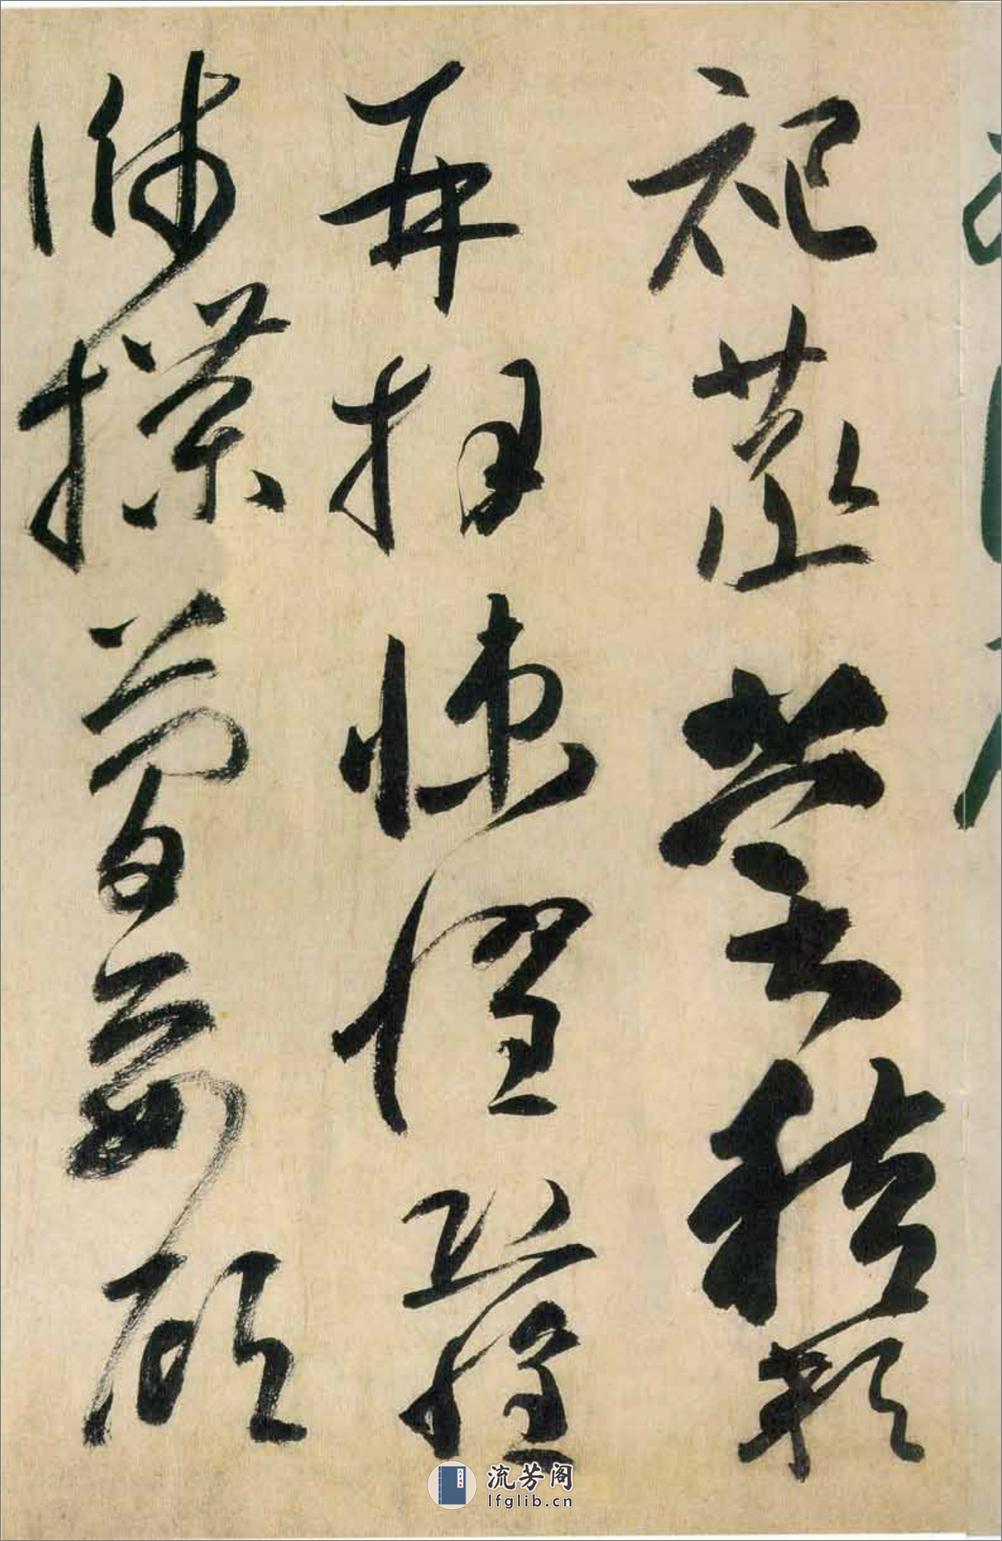 祀蒸嘗稽顙
再拜悚懼恐惶
牋牒簡要顧
流芳阁
lfglib.cn